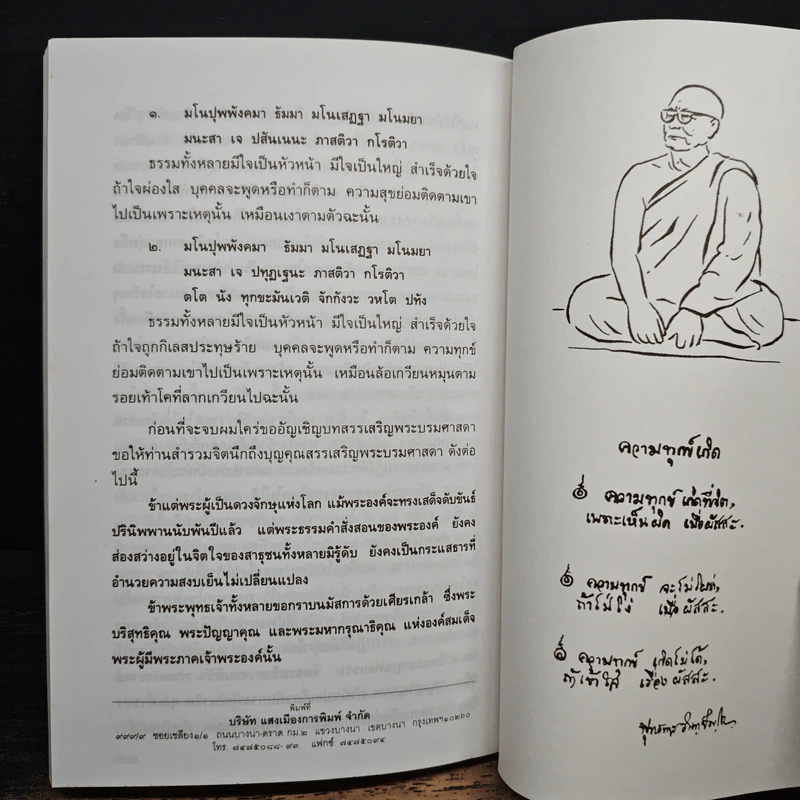 ๑. มโนปุพพังคมา ธัมมา มโนเสฏฐา มโนมยา
มนะสา เจ ปสันเนนะ ภาสติวา กโรติวา
ธรรมทั้งหลายมีใจเป็นหัวหน้า มีใจเป็นใหญ่ สำเร็จด้วยใจ
ถ้าใจผ่องใส บุคคลจะพูดหรือทำก็ตาม ความสุขย่อมติดตามเขา
ไปเป็นเพราะเหตุนั้น เหมือนเงาตามตัวฉะนั้น
๒. มโนปุพพังคมา ธัมมา มโนเสฏฐา มโนมยา
มนะสา เจ ปทุฏเฐนะ ภาสติวา กโรติวา
ตโต นัง ทุกขะมันเวติ จักกังวะ วหโต ปทัง
ธรรมทั้งหลายมีใจเป็นหัวหน้า มีใจเป็นใหญ่ สำเร็จด้วยใจ
ถ้าใจถูกกิเลสประทุษร้าย บุคคลจะพูดหรือทำก็ตาม ความทุกข์
ย่อมติดตามเขาไปเป็นเพราะเหตุนั้น เหมือนล้อเกวียนหมุนตาม
รอยเท้าโคที่ลากเกวียนไปฉะนั้น
ก่อนที่จะจบผมใคร่ขออัญเชิญบทสรรเสริญพระบรมศาสดา
ขอให้ท่านสำรวมจิตนึกถึงบุญคุณสรรเสริญพระบรมศาสดา ดังต่อ
ไปนี้
ข้าแต่พระผู้เป็นดวงจักษุแห่งโลก แม้พระองค์จะทรงเสด็จดับขันธ์
ปรินิพพานนับพันปีแล้ว แต่พระธรรมคำสั่งสอนของพระองค์ ยังคง
ส่องสว่างอยู่ในจิตใจของสาธุชนทั้งหลายมิรู้ดับ ยังคงเป็นกระแสธารที่
อำนวยความสงบเย็นไม่เปลี่ยนแปลง
ข้าพระพุทธเจ้าทั้งหลายขอกราบนมัสการด้วยเศียรเกล้า ซึ่งพระ
บริสุทธิคุณ พระปัญญาคุณ และพระมหากรุณาธิคุณ แห่งองค์สมเด็จ
พระผู้มีพระภาคเจ้าพระองค์นั้น
พิมพ์ที่
บริษัท แสงเมืองการพิมพ์ จำกัด
๙๙๙/๙ ซอยเชลียง๑/๑ ถนนบางนา-ตราด กม.๒ แขวงบางนา เขตบางนา กรุงเทพฯ๑๐๒๖๐
โทร. ๗๔๗๕๐๘๘-๙๓ แฟกซ์. ๗๔๗๕๐๙๔
ความทุกข์เกิด
ความทุกข์ เกิดที่จิต,
เพราะเห็นผิด เมื่อผัสสะ.
ความทุกข์ จะไม่โผล่,
ถ้าไม่โง่ เมื่อผัสสะ.
ความทุกข์ เกิดไม่ได้,
ถ้าเข้าใจ เรื่องผัสสะ.